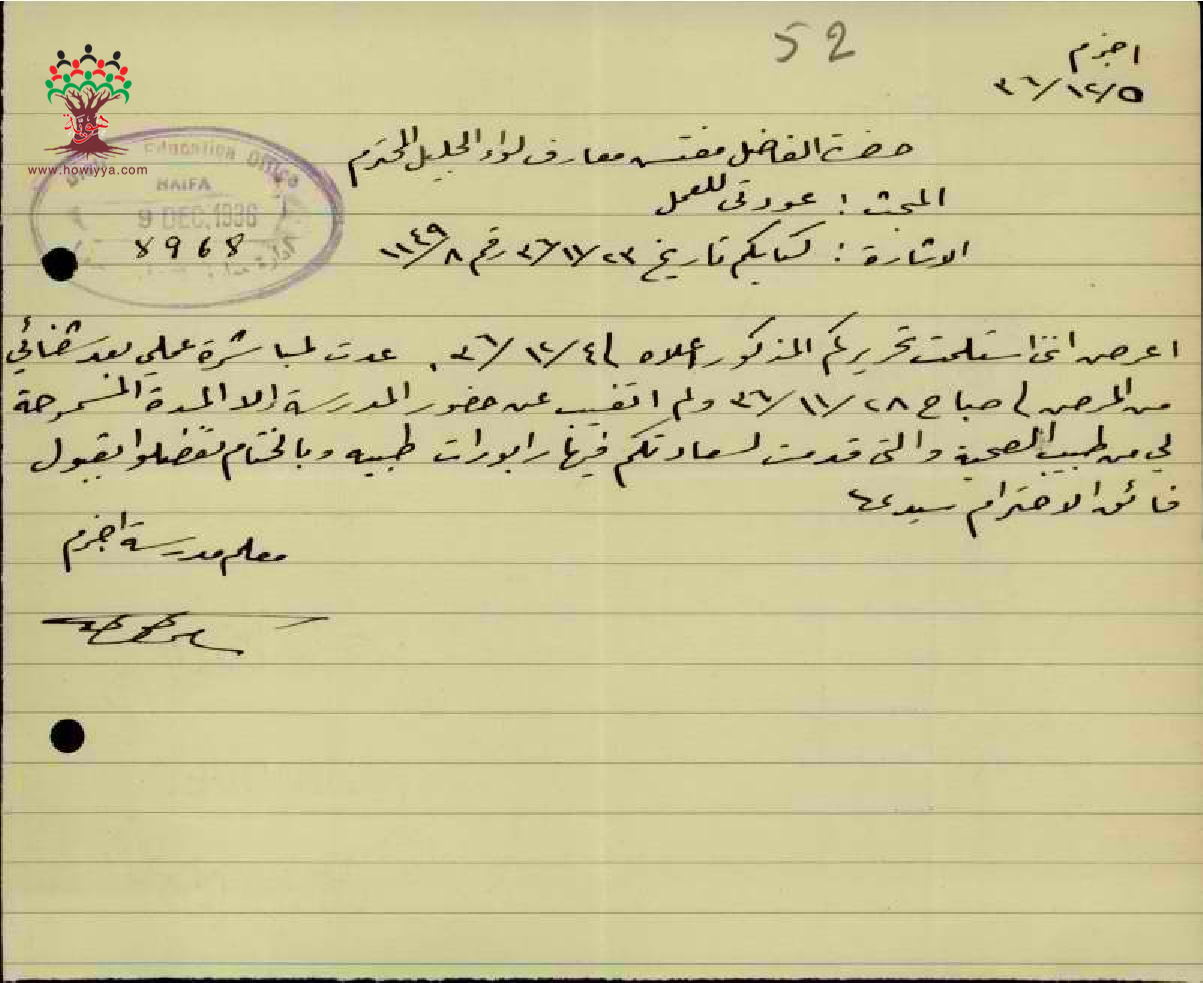 52
اجزم
٣٦/١٢/٥
هوية
www.howiyya.com
District Education Office
HAIFA
9 DEC. 1936
8968
حضرة الفاضل مفتش معارف لواء الجليل المحترم
المبحث : عودتي للعمل
الاشارة : كتابكم تاريخ ٣٦/١١/٢٣ رقم ١١٤٩/٨
اعرض انني استلمت تحريركم المذكور اعلاه في ٣٦/١٢/٤. عدت لمباشرة عملي بعد شفائي
من المرض في صباح ٣٦/١١/٢٨ ولم اتغيب عن حضور المدرسة الا المدة المسموحة
لي من طبيب الصحية والتي قدمت لسعادتكم فيها رابورات طبيه وبالختام تفضلوا بقبول
فائق الاحترام سيدي
معلم مدرسة اجزم